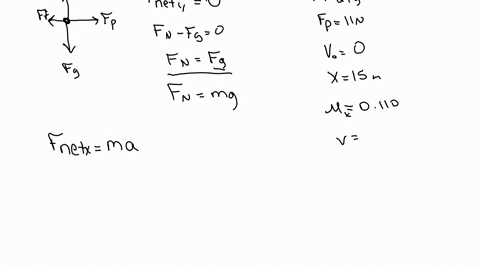 = 0
Ff
Fp
Fg
FN - Fg = 0
FN = Fg
FN = mg
Fp = 11N
V₀ = 0
X = 15m
μk = 0.110
v =
Fnetx = ma